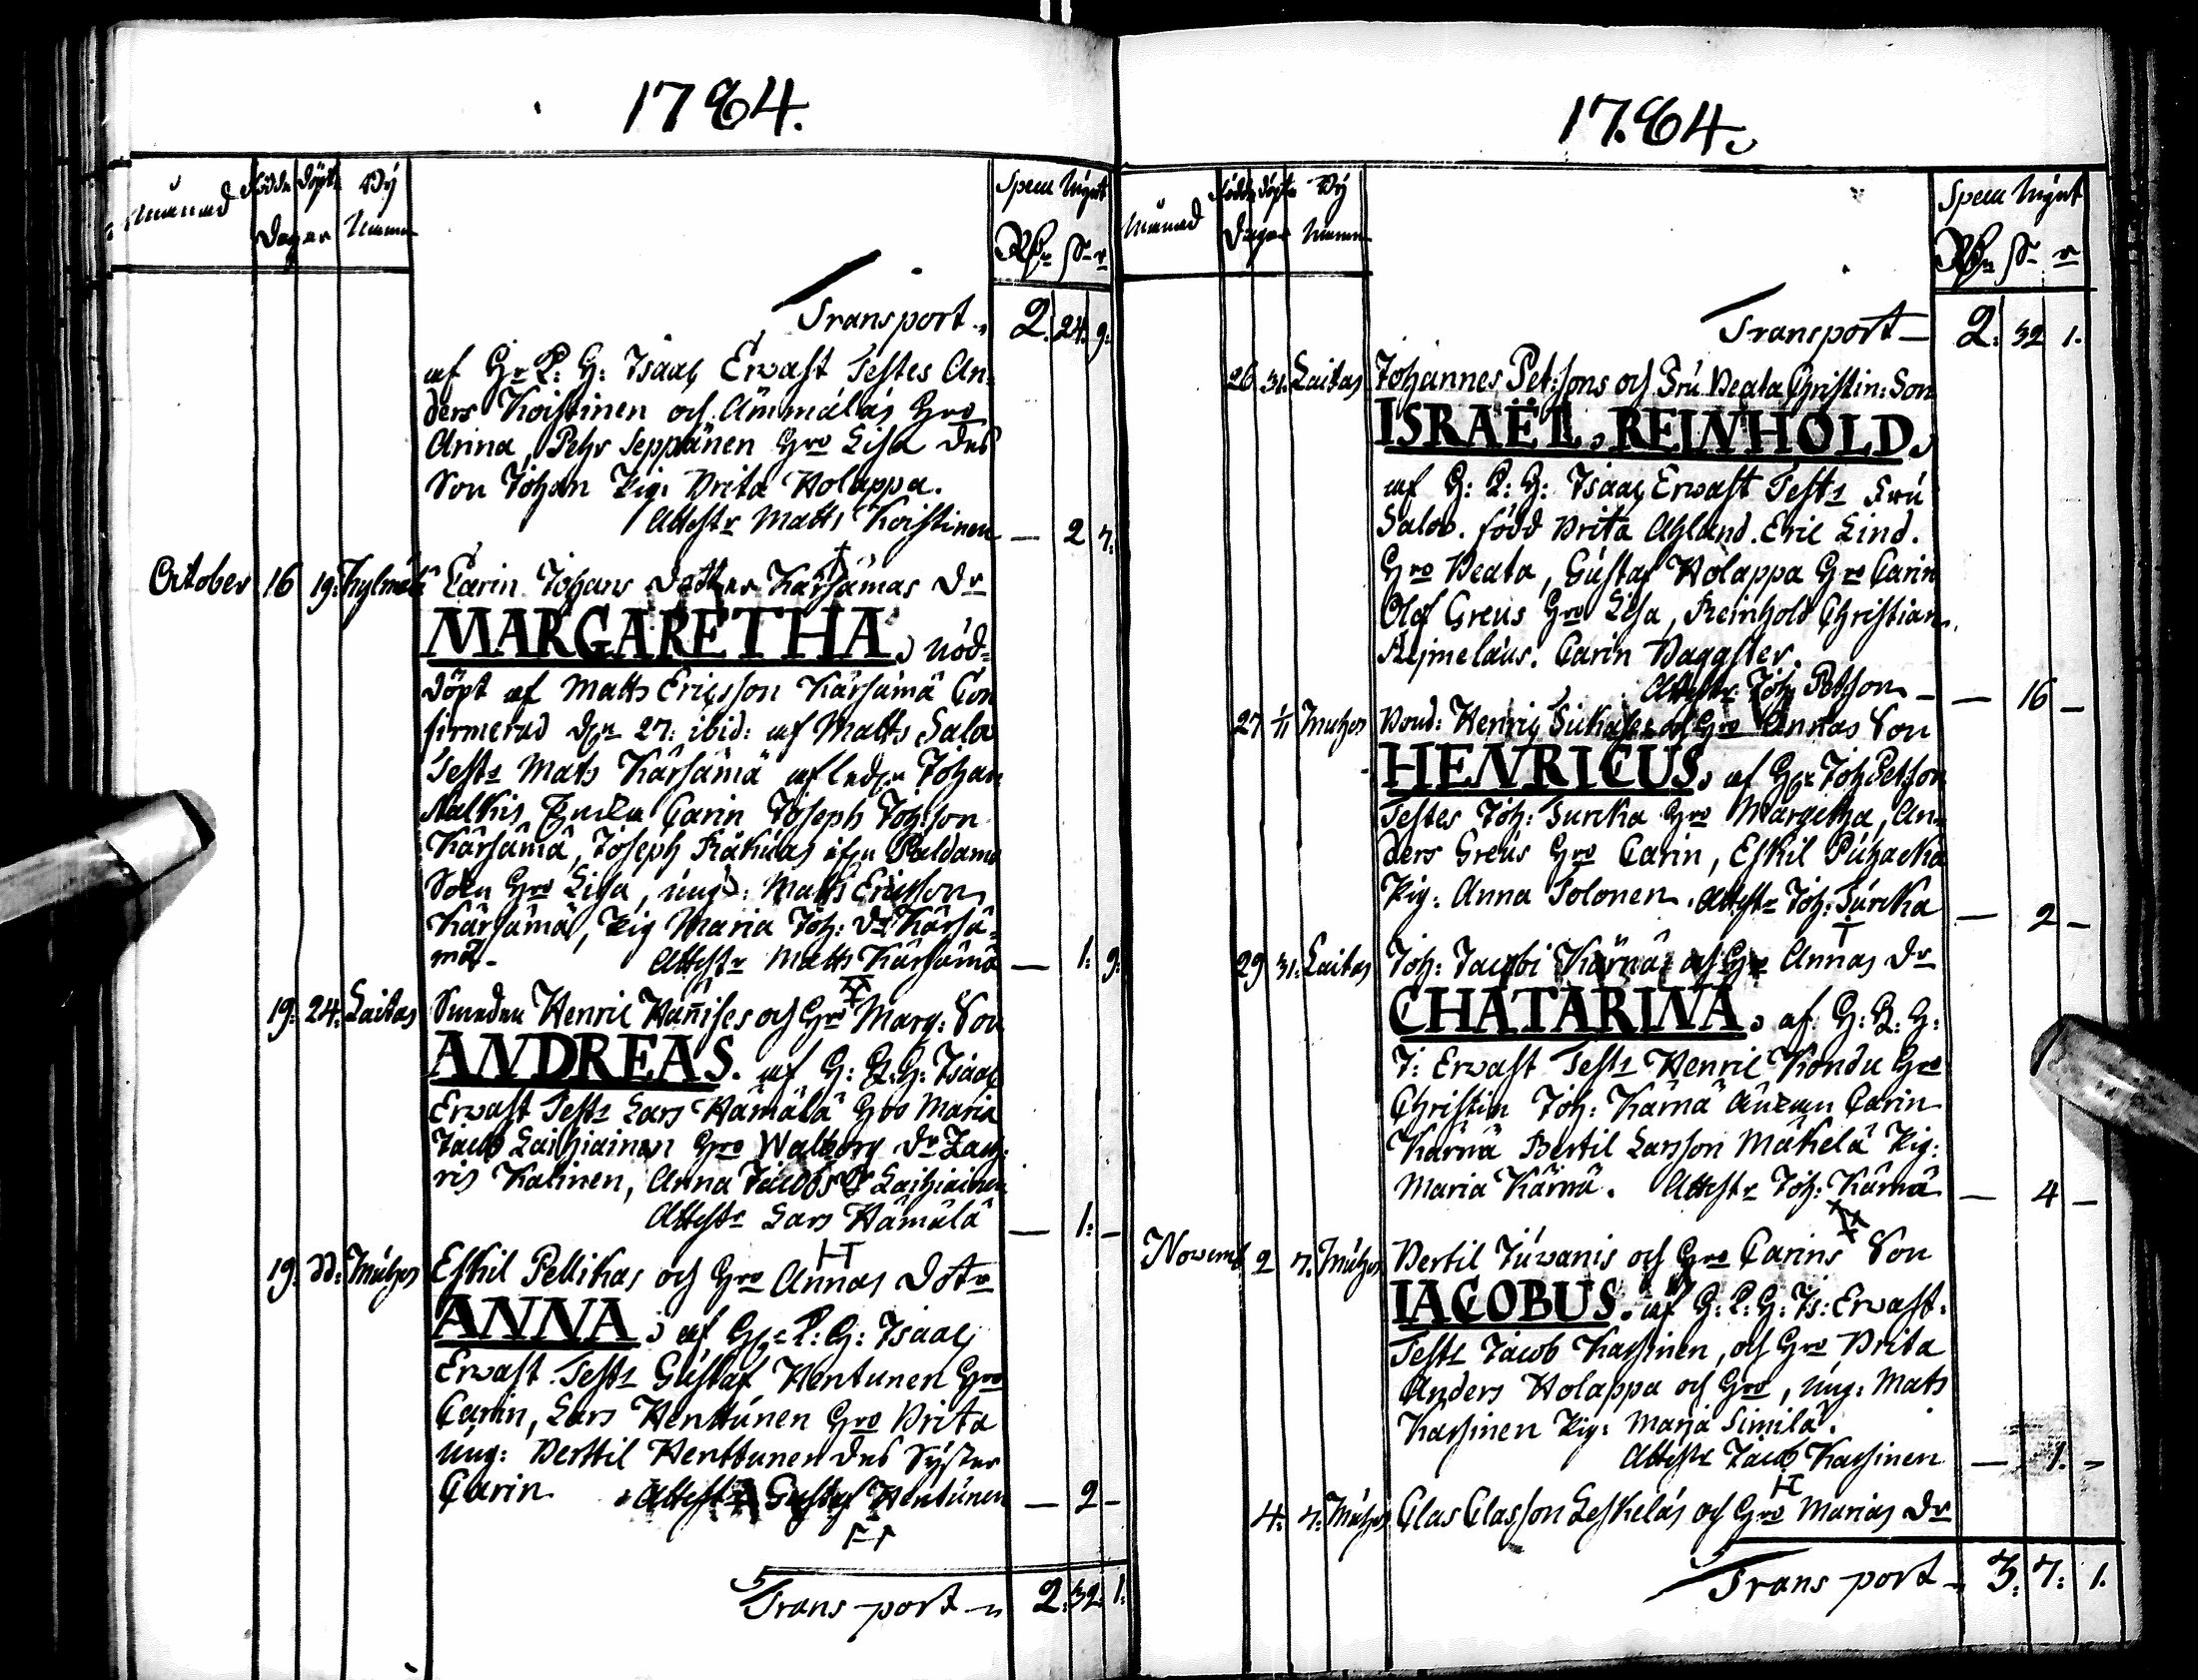 1784.
Månad Födde Döpte By
Dagar Namn
Spec: Mynt
Rdr s r
Transport 2. 24. 9.
af Hr P: H: Isaac Erwast Testes An-
ders Koistinen och Ämmäläs Hro
Anna, Pehr Seppänen Hro Lisa Des
Son Johan Pig: Brita Holappa.
Attestr Matts Koistinen — 2 7.
October 16 19: Kylmälä Carin Johans Dotter Kärsämäs Dr
MARGARETHA, nöd-
döpt af Matts Ericsson Kärsämä Con
firmerad den 27: ibid: af Matts Salo
Tests Mats Kärsämä afledn Johan
Carin Joseph Joh:son
Kärsämä, Joseph ifrn Paldamo
Sokn Hro Lisa, ung: Matts Ericsson
Kärsämä, Pig Maria Joh: Dr Kärsä-
mä. Attestr Matts Kärsämä — 1: 9:
19: 24: Laitas Smeden Henric Hañises och Hro Marg: Son
ANDREAS. af H: P: H: Isaac
Erwast Tests Lars Hämälä Hro Maria
Jacob Laihiainen Hro Walborg Dr Zach:
ris Kahinen, Anna Jacobs Dr Laihiainen
Attestr Lars Hämälä — 1: —
19: Do: Muhos Eskil Pellikas och Hro Annas Dotr
ANNA, af Hr P: H: Isaac
Erwast Tests Gustaf Henttunen Hro
Carin, Lars Henttunen Hro Brita
ung: Berttil Henttunen Des Syster
Carin Attestr Gustaf Hentunen — 2 —
Transport 2: 32: 1:
1784.
Månad Födde Döpte By
Dagar Namn
Spec: Mynt
Rdr s r
Transport — 2: 32 1.
26 31: Laitas Johannes Pet:sons och Fru Beata Christin: Son
ISRAËL, REINHOLD,
af H: P: H: Isaac Erwast Tests Fru
Salov. född Brita Ahland. Eric Lind.
Hro Beata, Gustaf Holappa Hro Carin
Olof Greus Hro Lisa, Reinhold Christian
Rejmeläus. Carin Baggster.
Attestr Joh Petsson — — 16 —
27 1/11 Muhos Bond: Henric och Hro Annas Son
HENRICUS, af Hr Joh Petsson
Testes Joh: Surcka Hro Margetha, An-
ders Greus Hro Carin, Eskil Puhacka
Pig: Anna Tolonen. Attestr Joh: Surcka — 2 —
29 31: Laitas Joh: Jacobi Kärnäs och Hro Annas Dr
CHATARINA, af H: P: H:
I: Erwast Tests Henric Kondu Hro
Christin Joh: Kärnä Änkan Carin
Kärnä Bertil Larsson Mäkelä Pig:
Maria Kärnä. Attestr Joh: Kärnä — 4 —
Novemb 2 7. Muhos Bertil Juvanis och Hro Carins Son
IACOBUS. af H: P: H: Is: Erwast.
Tests Jacob Kassinen, och Hro Brita
Anders Holappa och Hro, ung: Mats
Kassinen Pig: Marja Similä.
Attestr Jacob Kassinen — 1. —
4: 7: Muhos Clas Classon Leskeläs och Hro Marias Dr
Transport — 3: 7: 1.